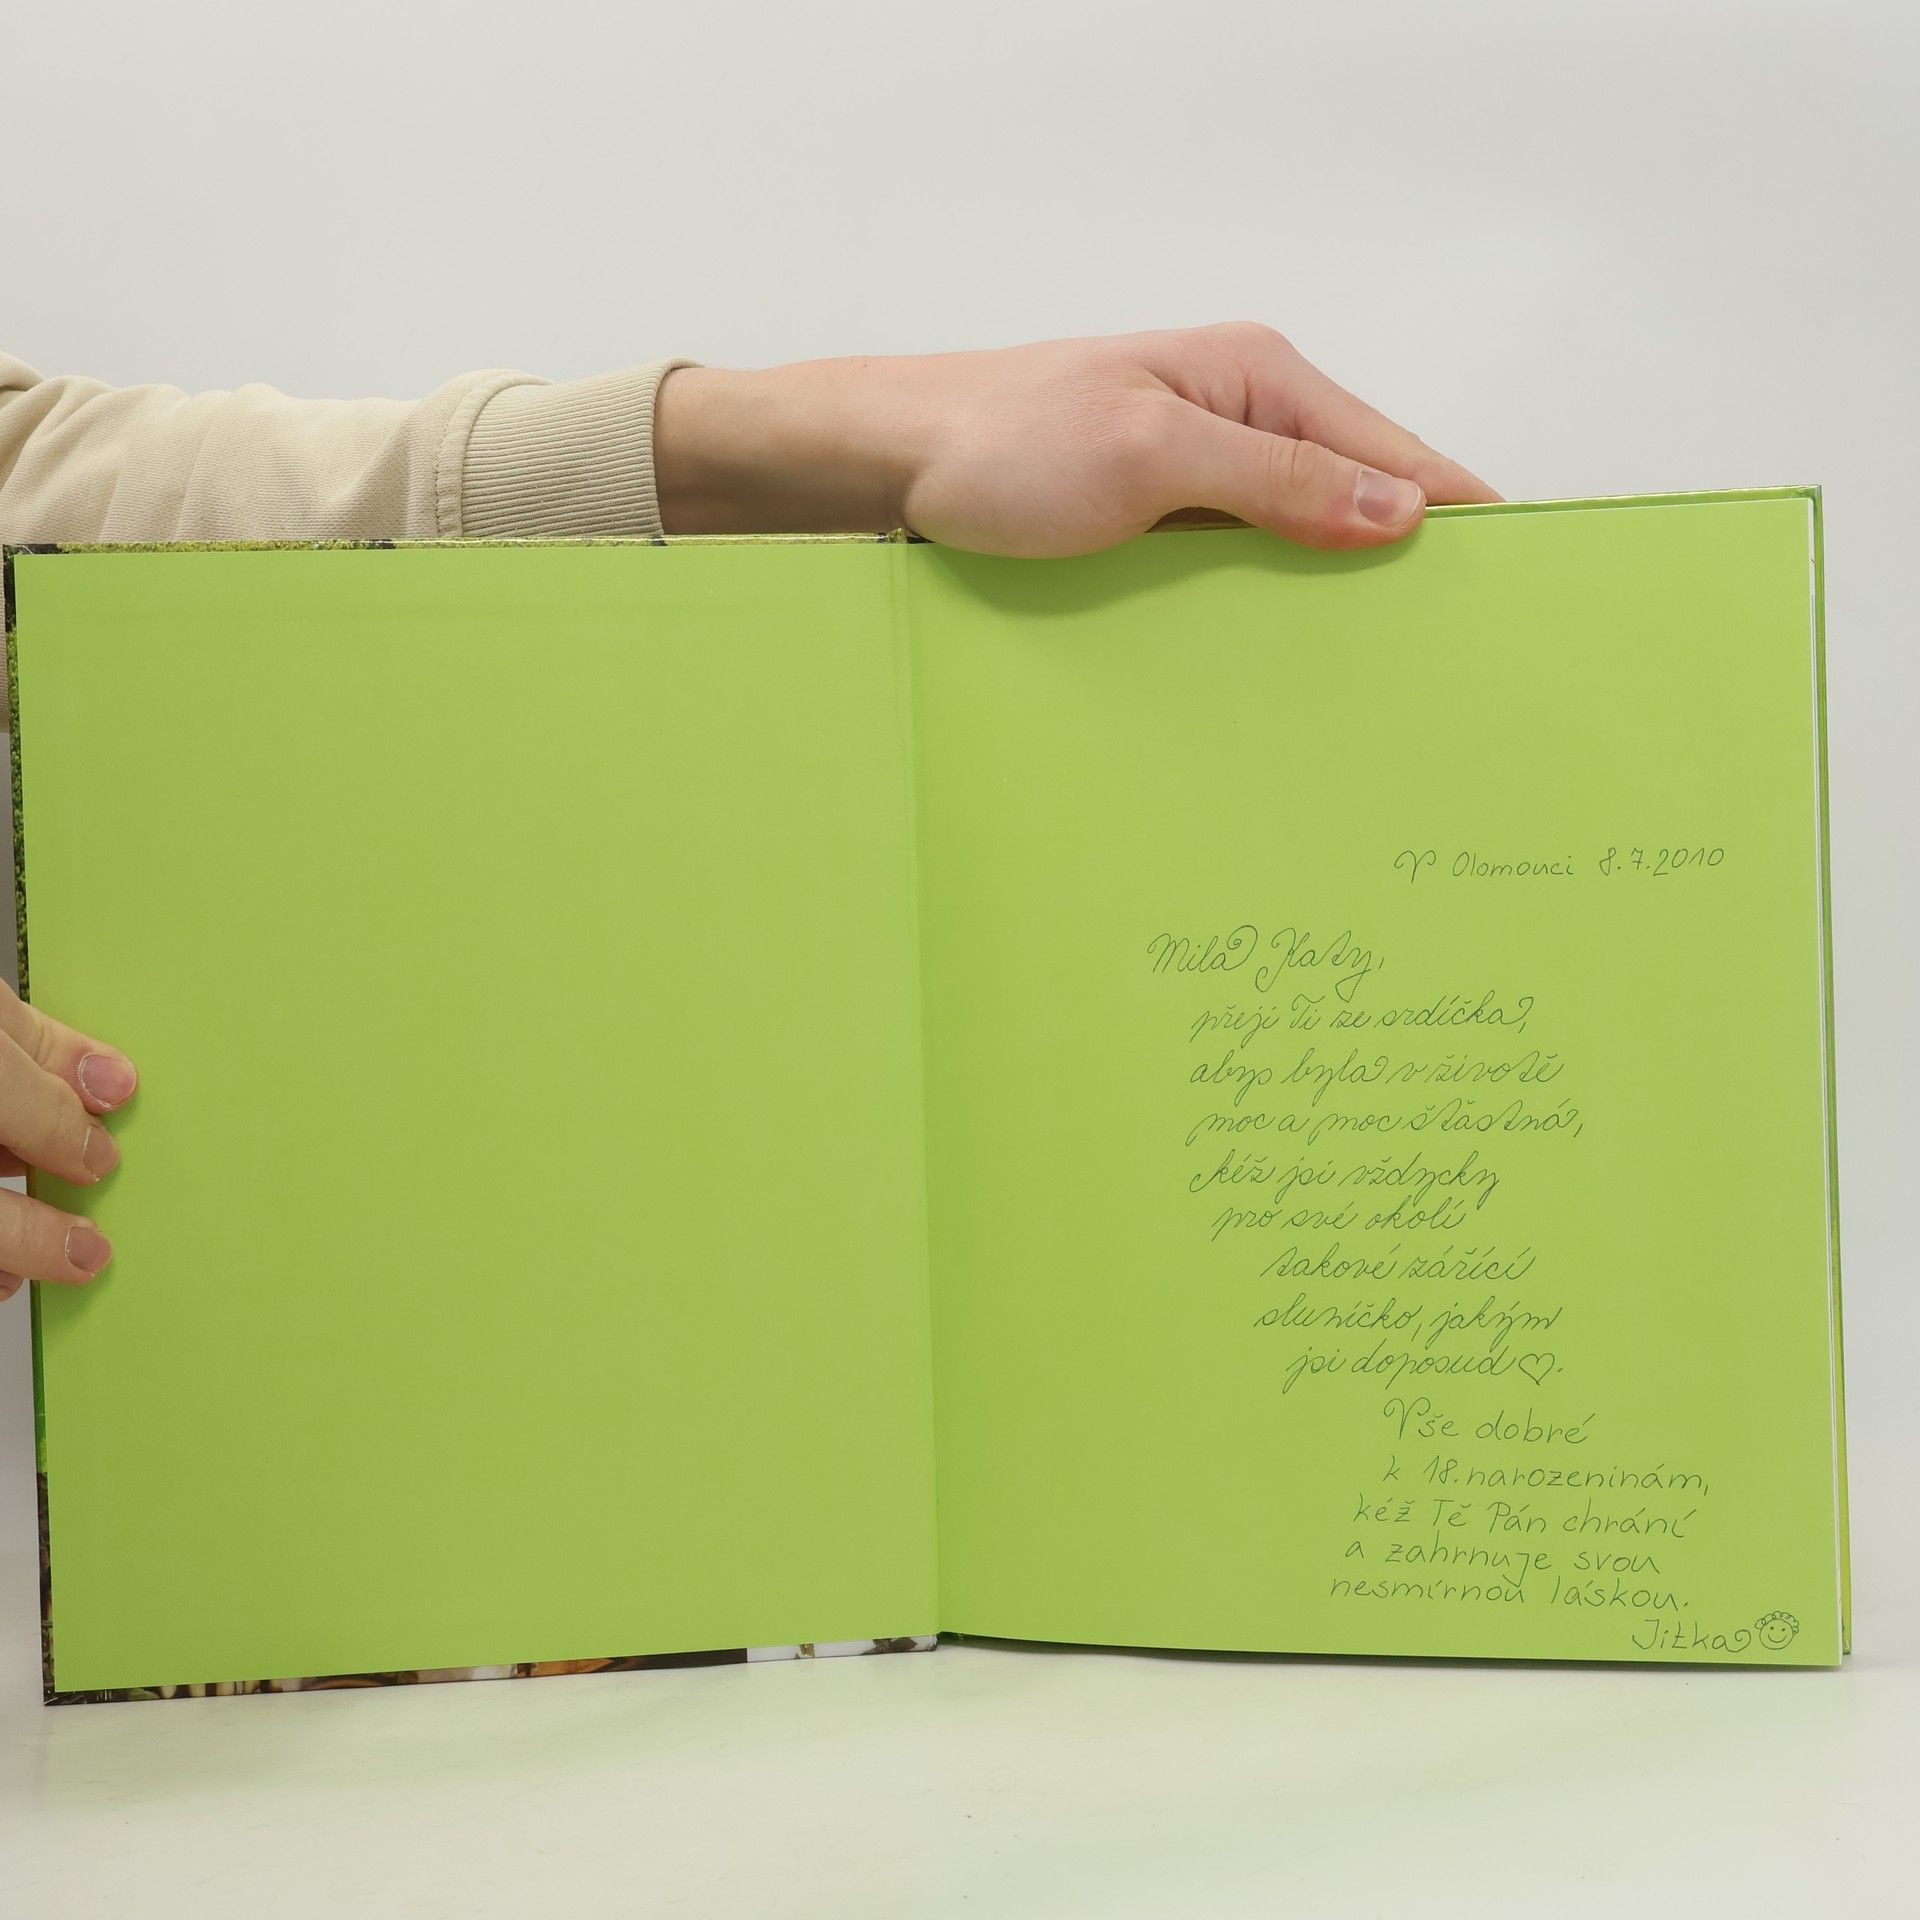 V Olomouci 8.7.2010
Milá Katy,
přeji Ti ze srdíčka,
abys byla v životě
moc a moc šťastná,
kéž jsi vždycky
pro své okolí
takové zářící
sluníčko, jakým
jsi doposud ♡.
Vše dobré
k 18. narozeninám,
kéž Tě Pán chrání
a zahrnuje svou
nesmírnou láskou.
Jitka